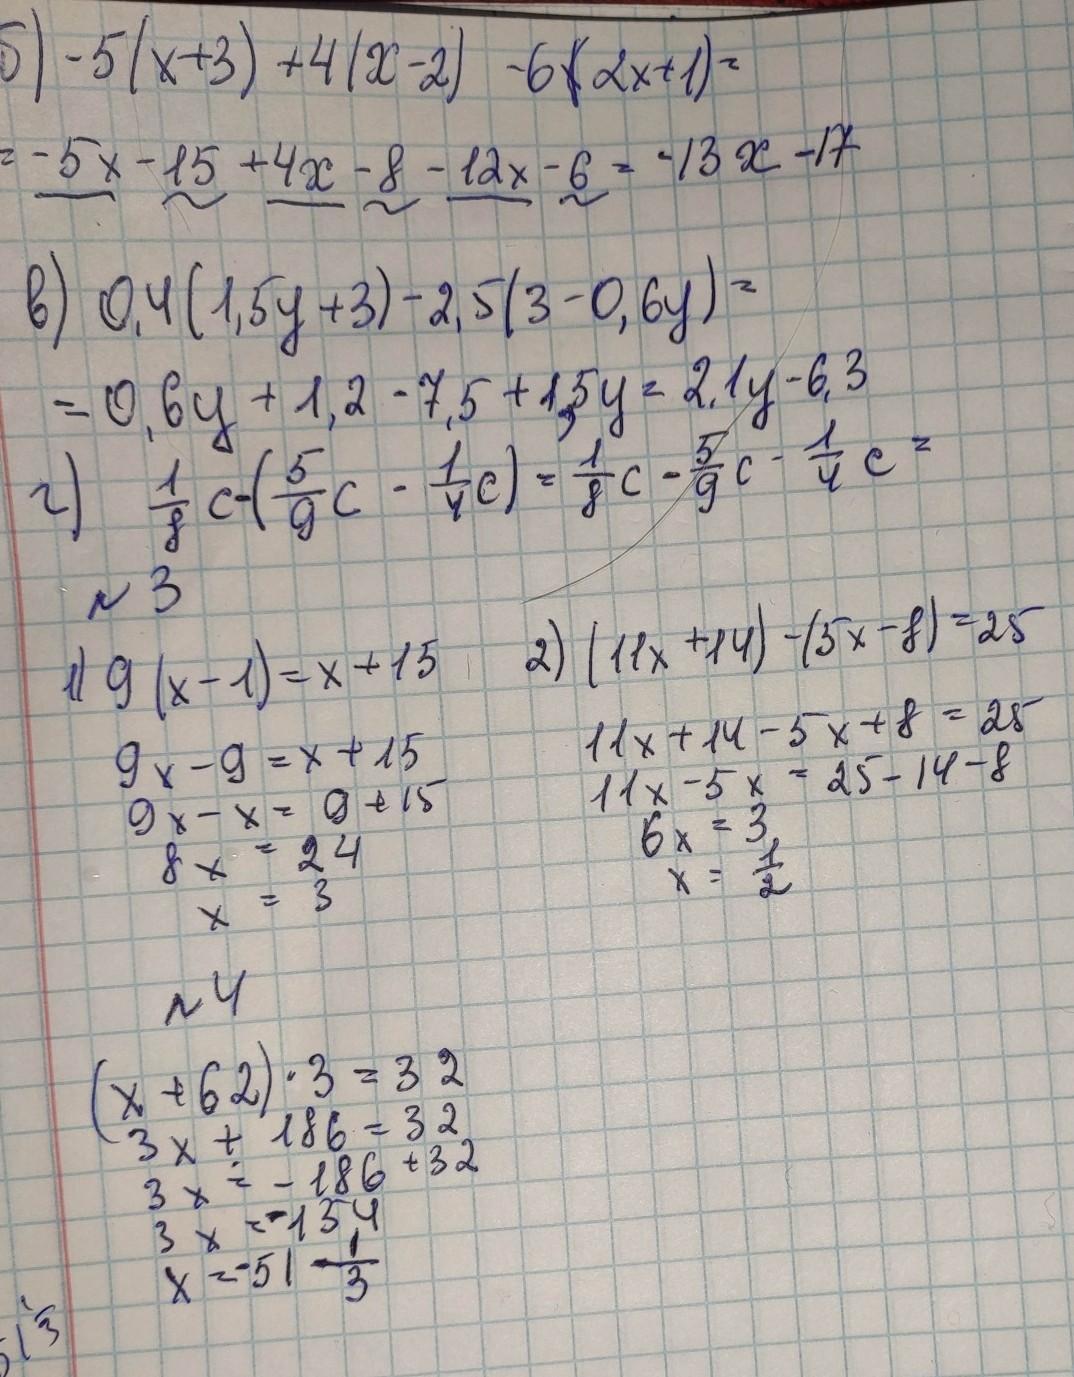 б) -5(x+3) +4(x-2) -6(2x+1)=
= -5x -15 +4x -8 -12x -6 = -13x -17
в) 0,4(1,5y+3)-2,5(3-0,6y)=
= 0,6y + 1,2 - 7,5 + 1,5y = 2,1y - 6,3
г) 1/8 c-(5/9 c - 1/4 c) = 1/8 c - 5/9 c - 1/4 c =
N 3
1) 9(x-1)=x+15 2) (11x+14)-(5x-8)=25
9x-9=x+15 11x+14-5x+8=25
9x-x= 9+15 11x-5x = 25-14-8
8x = 24 6x = 3
x = 3 x = 1/2
N 4
(x+62)·3=32
3x+186=32
3x=-186+32
3x=-154
x=-51 1/3
51 1/3